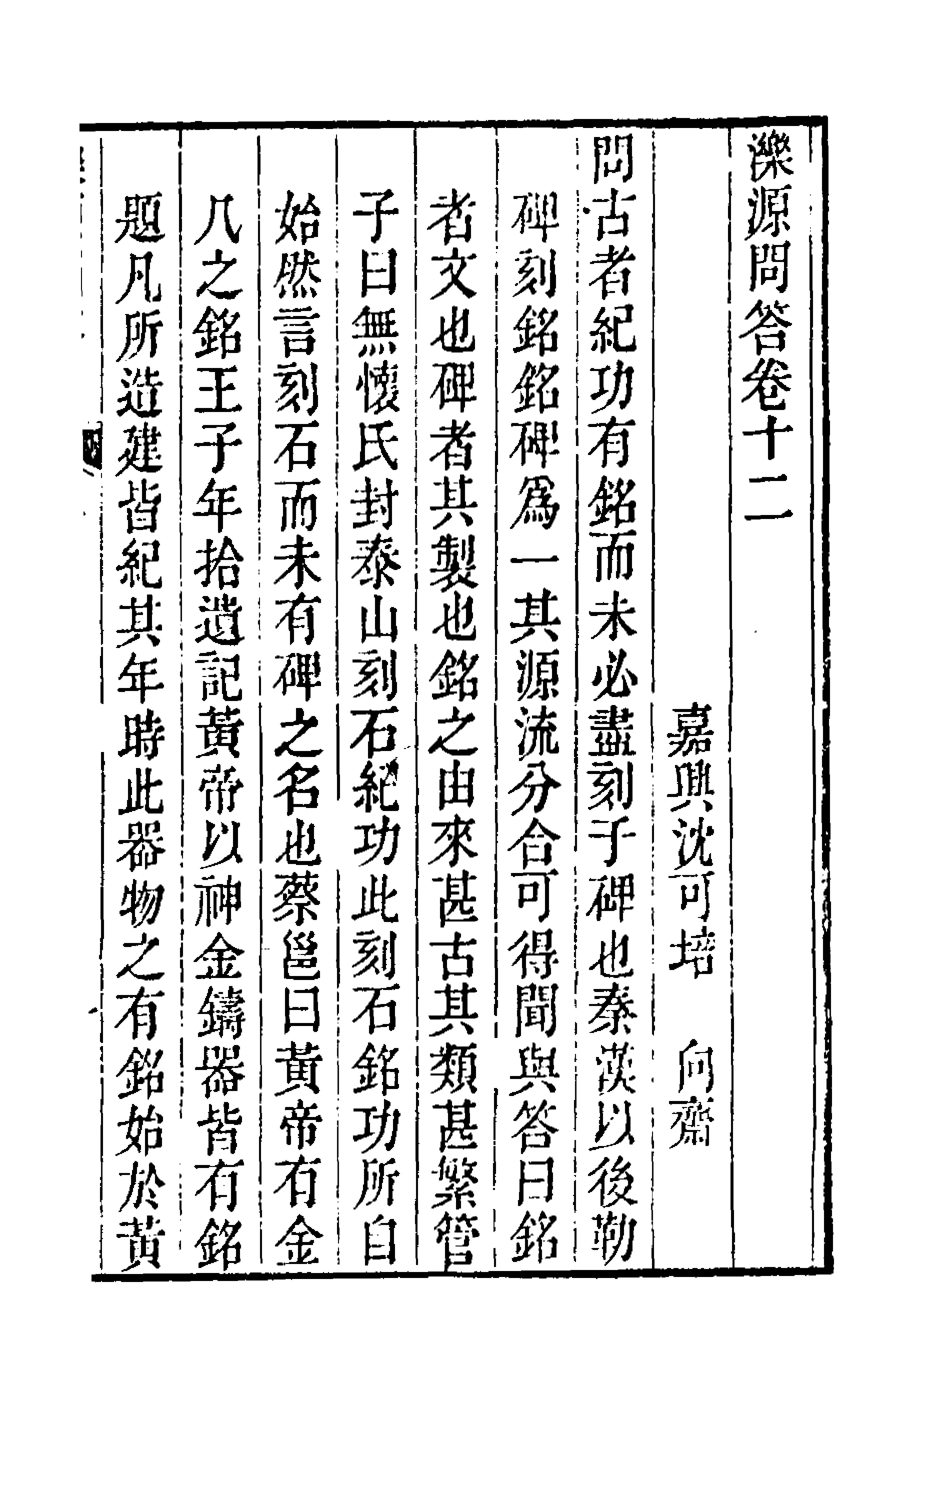 濼源問答卷十二
嘉興沈可培　向齋
問古者紀功有銘而未必盡刻于碑也秦漢以後勒
碑刻銘銘碑爲一其源流分合可得聞與答曰銘
者文也碑者其製也銘之由來甚古其類甚繁管
子曰無懷氏封泰山刻石紀功此刻石銘功所自
始然言刻石而未有碑之名也蔡邕曰黃帝有金
几之銘王子年拾遺記黃帝以神金鑄器皆有銘
題凡所造建皆紀其年時此器物之有銘始於黃